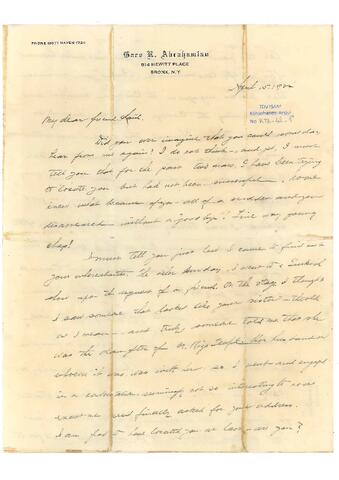 Garo K. Abrahamian
914 HEWITT PLACE
BRONX, N.Y.
April 15, 19
TÜVİSAM
My dear friend
Did you ever imagine that you could some day
hear from me again? I do not think - and yet, I must
tell you that for the past two years I have been trying
to locate you but had not been successful. No one
knew what became of you - all of a sudden you
disappeared without a "good bye"! Fine way, young
chap!
I must tell you just how I came to find out
your whereabouts. The other Sunday I went to a
show upon the request of a friend. On the stage I thought
I saw someone that looks like your sister -
I mean - and truly someone told me that she
was the daughter of Her husband or
whoever it was was with her so I went and engaged
in a conversation, seemingly not so interesting to
and finally asked for your address.
I am glad to have located you at last - are you?